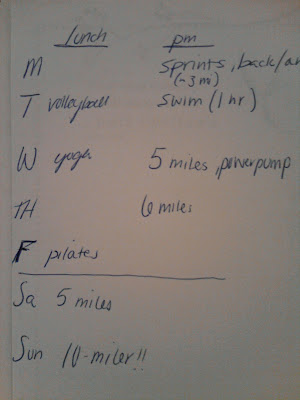 lunch pm
M sprints, back/ar
(~3 mi)
T volleyball swim (1 hr)
W yoga 5 miles, powerpump
TH 6 miles
F pilates
Sa 5 miles
Sun 10-miler!!